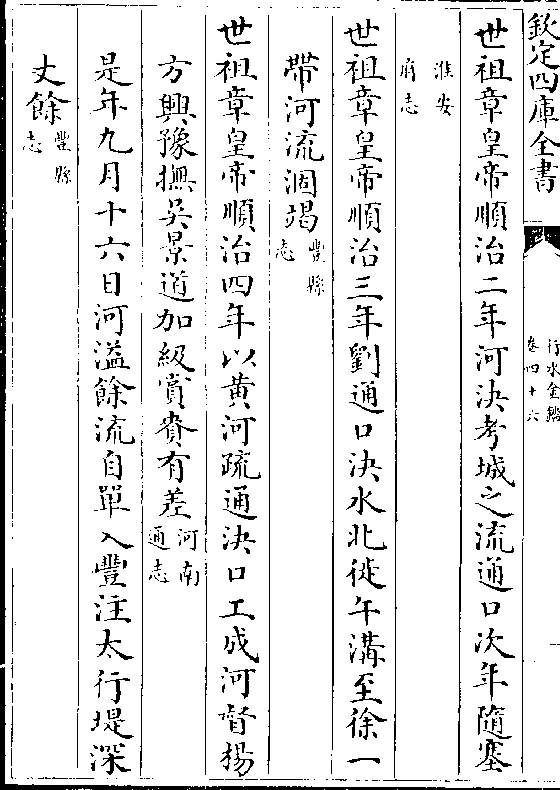 欽定四庫全書
行水金鑑
卷四十六
世祖章皇帝順治二年河決考城之流通口次年隨塞
淮安
府志
世祖章皇帝順治三年劉通口決水北徙午溝至徐一
帶河流涸竭
豐縣
志
世祖章皇帝順治四年以黄河疏通決口工成河督楊
方興豫撫吳景道加級賞賚有差
河南
通志
是年九月十六日河溢餘流自單入豐注太行堤深
丈餘
豐縣
志